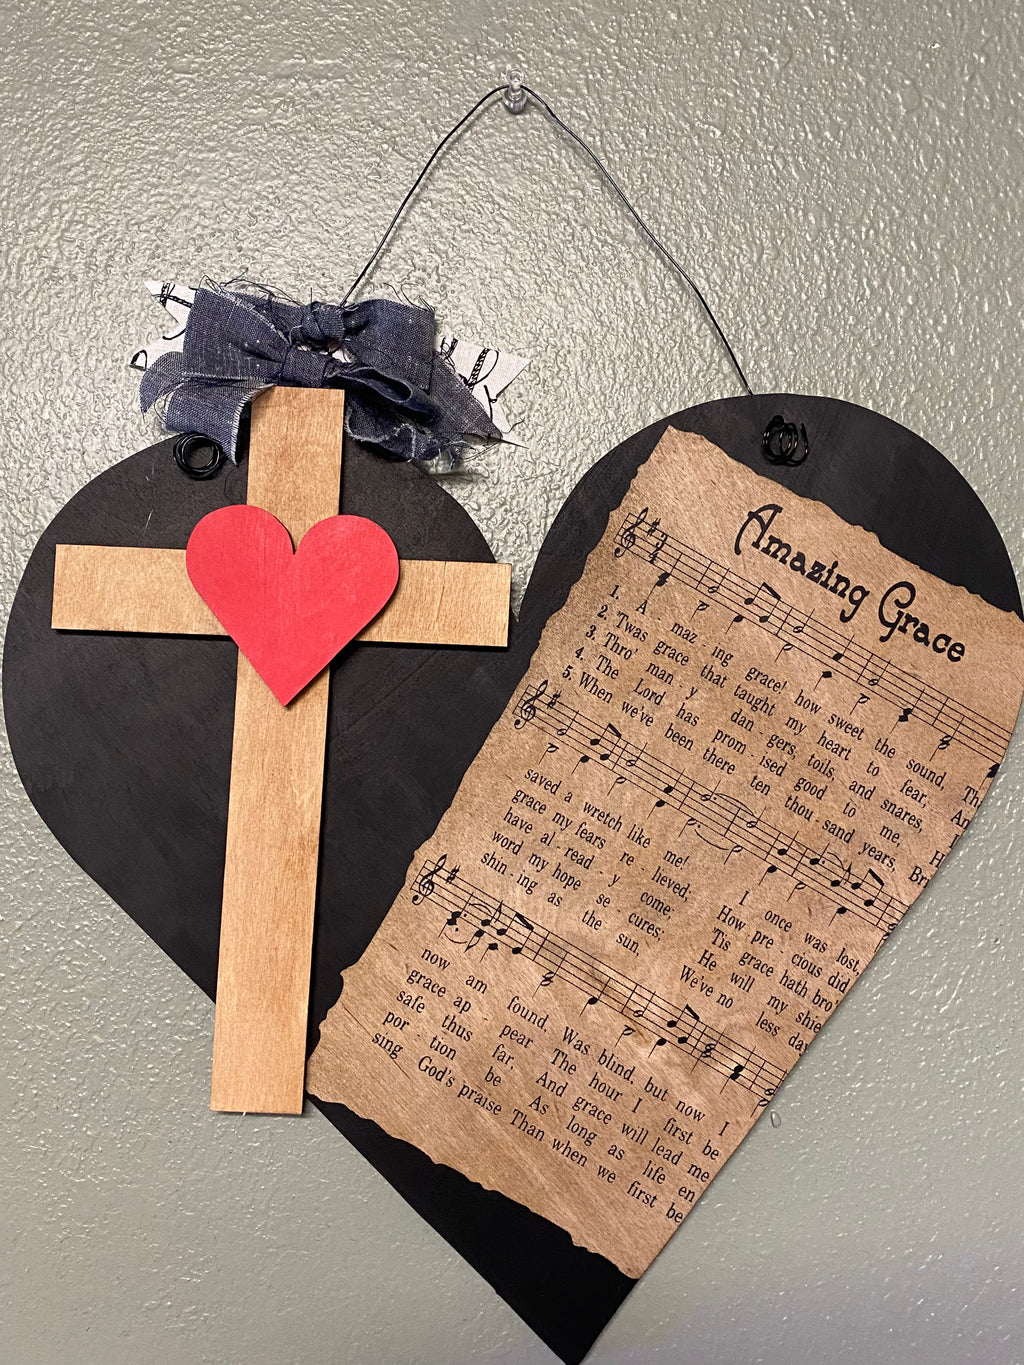 Amazing Grace
1. A - maz - ing grace! how sweet the sound, Th
2. 'Twas grace that taught my heart to fear, An
3. Thro' man - y dan - gers, toils, and snares,
4. The Lord has prom - ised good to me, H
5. When we've been there ten thou - sand years, Br
saved a wretch like me! I once was lost,
grace my fears re - lieved; How pre - cious did
have al - read - y come; 'Tis grace hath bro'
word my hope se cures; He will my shie
shin - ing as the sun, We've no less day
now am found, Was blind, but now I
grace ap pear The hour I first be
safe thus far, And grace will lead me
por - tion be As long as life en
sing God's praise Than when we first be